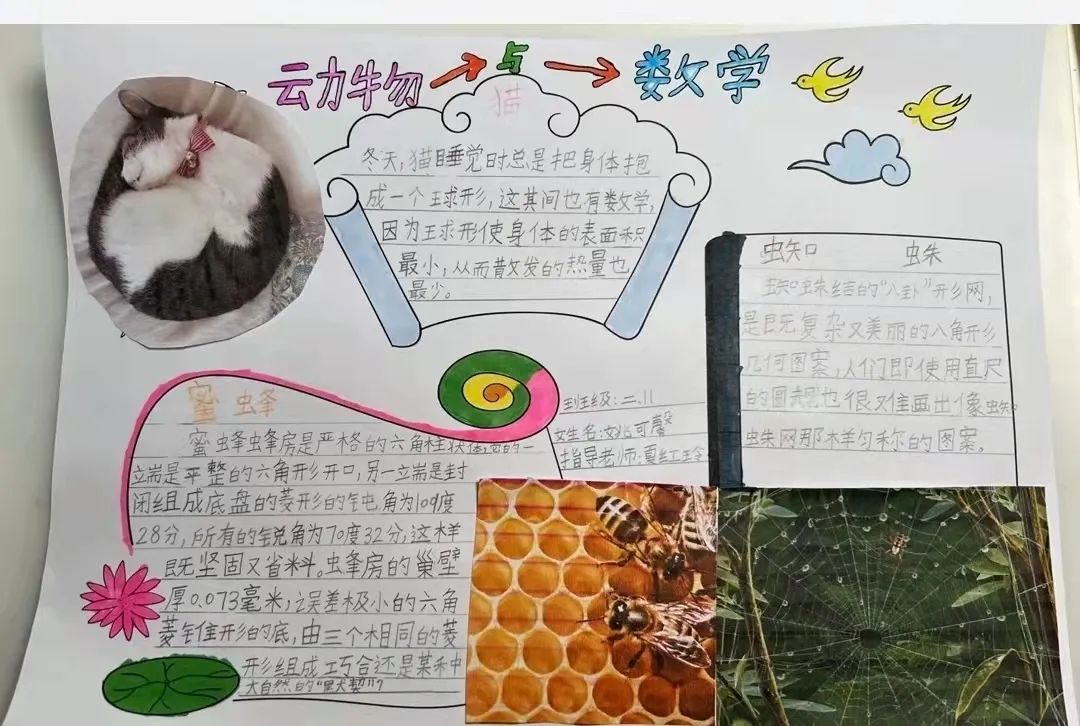 动物 与 数学
猫
冬天，猫睡觉时总是把身体抱
成一个球形，这其间也有数学，
因为球形使身体的表面积
最小，从而散发的热量也
最少。
蜘 蛛
蜘蛛结的“八卦”形网，
是既复杂又美丽的八角形
几何图案，人们即使用直尺
的圆规也很难画出像蜘
蛛网那样匀称的图案。
蜜 蜂
蜜蜂蜂房是严格的六角柱状体，它的一
端是平整的六角形开口，另一端是封
闭组成底盘的菱形的钝角为109度
28分，所有的锐角为70度32分，这样
既坚固又省料。蜂房的巢壁
厚0.073毫米，误差极小的六角
菱锥形的底，由三个相同的菱
形组成巧合还是某种
大自然的“默契”？
班级：二.11
姓名：姚可馨
指导老师：夏红玲